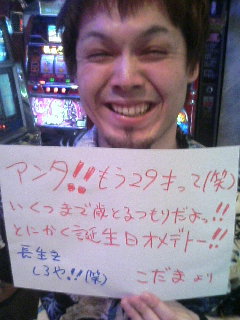 アンタ!!もう29才って(笑)
いくつまで歳とるつもりだよッ!!
とにかく誕生日オメデトー!!
長生き
しろや!!(笑)
こだまより